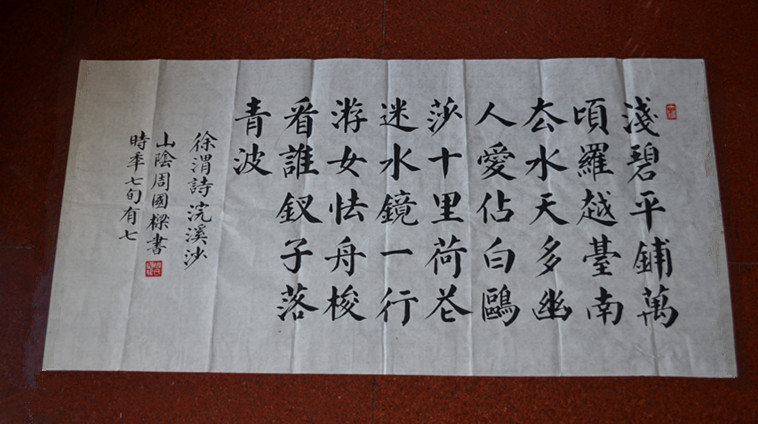 淺碧平鋪萬
頃羅越臺南
厺水天多幽
人愛佔白鷗
莎十里荷花
迷水鏡一行
游女怯舟梭
看誰釵子落
青波
徐渭詩浣溪沙
山陰周國樑書
時秊七旬有七